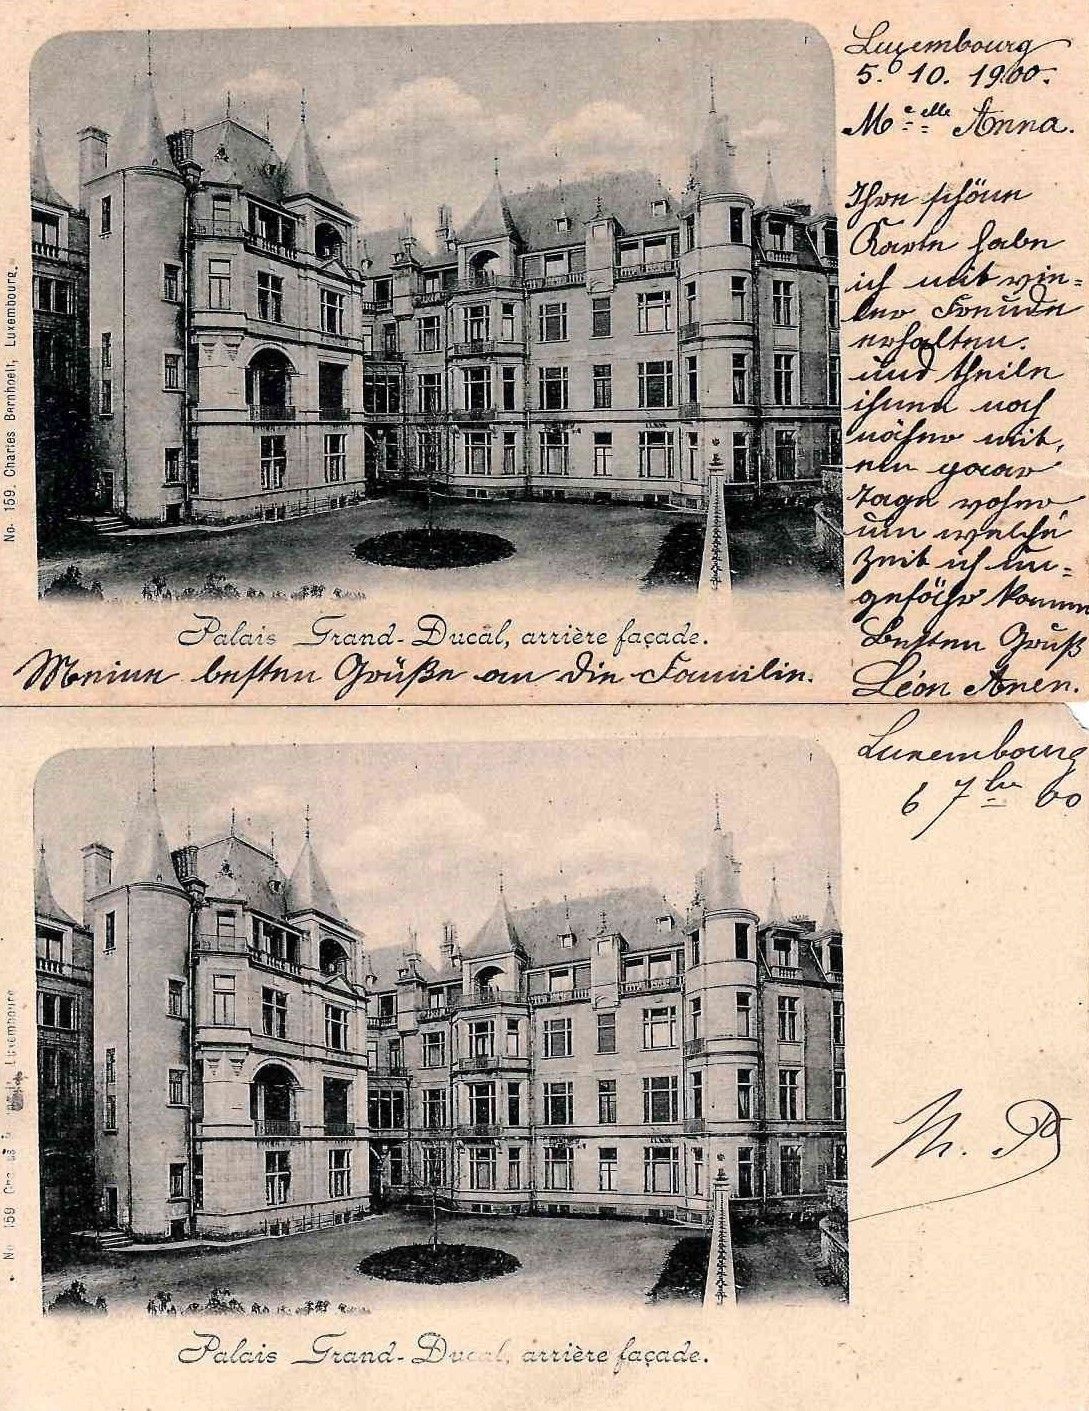 Luxembourg
5. 10. 1900.
M elle Anna.
Ihre schöne
Karte habe
ich mit vie=
ler Freude
erhalten.
und theile
ihnen noch
näher mit,
ein paar
Tage vorher
um welche
Zeit ich un=
gefähr komme
Besten Gruß
Léon Anen.
No. 159. Charles Bernhoeft, Luxembourg.
Palais Grand-Ducal, arrière façade.
Meine besten Grüße an die Familie.
Luxembourg
6 7bre 00
M. P
No 159 Luxembourg
Palais Grand-Ducal, arrière façade.